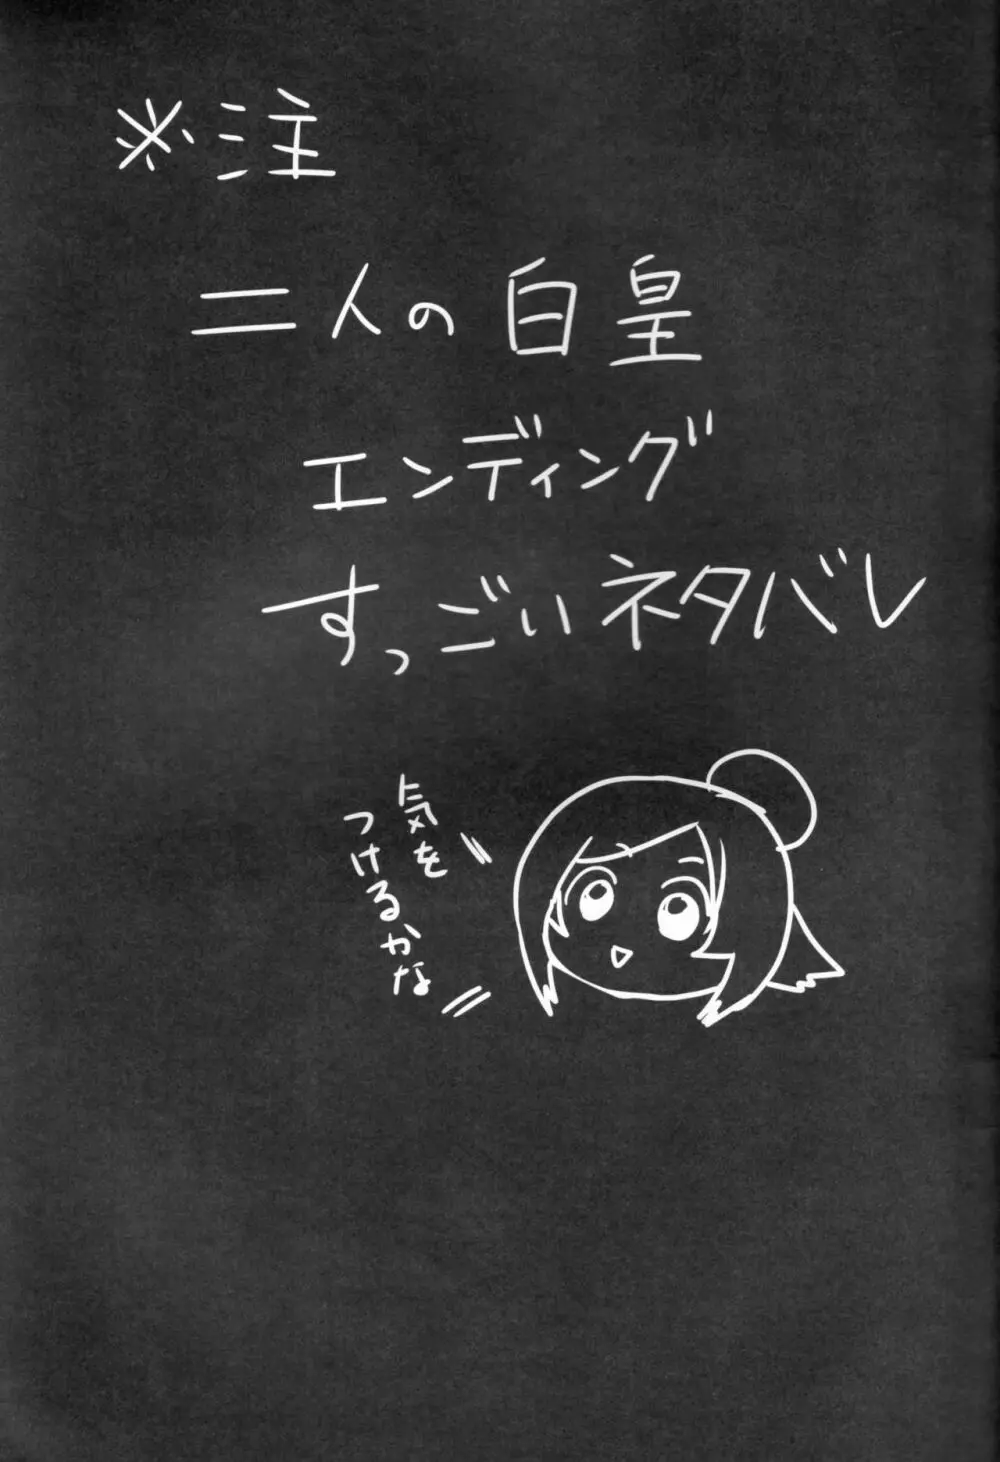 ※注
二人の白皇
エンディング
すっごいネタバレ
気を
つけるかな